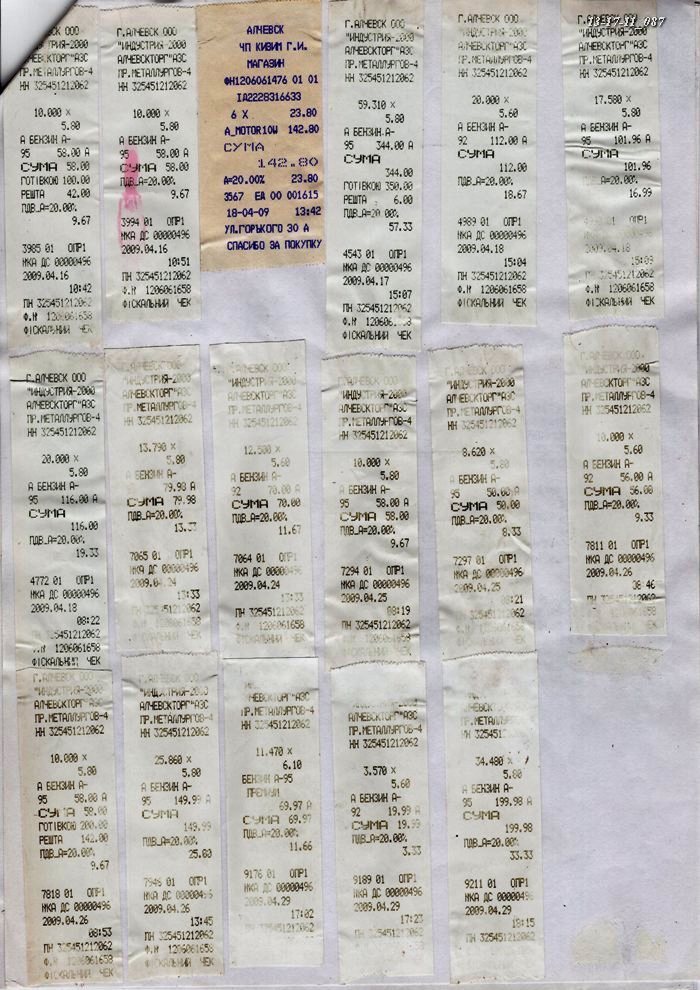 Г.АЛЧЕВСК ООО
"ИНДУСТРИЯ-2000
АЛЧЕВСКТОРГ"АЗС
ПР.МЕТАЛЛУРГОВ-4
НН 325451212062
10.000 x
5.80
А БЕНЗИН А-
95 58.00 А
СУМА 58.00
ГОТІВКОЮ 100.00
РЕШТА 42.00
ПДВ_А=20.00%
9.67
3985 01 ОПР1
ЖКА ДС 00000496
2009.04.16
10:42
ПН 325451212062
Ф.N 1206061658
ФІСКАЛЬНИЙ ЧЕК
Г.АЛЧЕВСК ООО
"ИНДУСТРИЯ-2000
АЛЧЕВСКТОРГ"АЗС
ПР.МЕТАЛЛУРГОВ-4
НН 325451212062
10.000 x
5.80
А БЕНЗИН А-
95 58.00 А
СУМА 58.00
ПДВ_А=20.00%
9.67
3994 01 ОПР1
ЖКА ДС 00000496
2009.04.16
10:51
ПН 325451212062
Ф.N 1206061658
ФІСКАЛЬНИЙ ЧЕК
АЛЧЕВСК
ЧП КИЗИМ Г.И.
МАГАЗИН
ФН1206061476 01 01
ІД2228316633
6 X 23.80
А_МОТОR10W 142.80
СУМА
142.80
А=20.00% 23.80
3567 ЕА 00 001615
18-04-09 13:42
УЛ.ГОРЬКОГО 30 А
СПАСИБО ЗА ПОКУПКУ
Г.АЛЧЕВСК ООО
"ИНДУСТРИЯ-2000
АЛЧЕВСКТОРГ"АЗС
ПР.МЕТАЛЛУРГОВ-4
НН 325451212062
59.310 x
5.80
А БЕНЗИН А-
95 344.00 А
СУМА
344.00
ГОТІВКОЮ 350.00
РЕШТА 6.00
ПДВ_А=20.00%
57.33
4543 01 ОПР1
ЖКА ДС 00000496
2009.04.17
15:07
ПН 325451212062
ФІСКАЛЬНИЙ ЧЕК
Г.АЛЧЕВСК ООО
"ИНДУСТРИЯ-2000
АЛЧЕВСКТОРГ"АЗС
ПР.МЕТАЛЛУРГОВ-4
НН 325451212062
20.000 x
5.60
А БЕНЗИН А-
92 112.00 А
СУМА
112.00
ПДВ_А=20.00%
18.67
4989 01 ОПР1
ЖКА ДС 00000496
2009.04.18
15:04
ПН 325451212062
Ф.N 1206061658
ФІСКАЛЬНИЙ ЧЕК
13-1731_087
Г.АЛЧЕВСК ООО
"ИНДУСТРИЯ-2000
АЛЧЕВСКТОРГ"АЗС
ПР.МЕТАЛЛУРГОВ-4
НН 325451212062
17.580 x
5.80
А БЕНЗИН А-
95 101.96 А
СУМА
101.96
ПДВ_А=20.00%
16.99
01 ОПР1
ЖКА ДС 00000496
2009.04.18
15:09
ПН 325451212062
Ф.N 1206061658
ФІСКАЛЬНИЙ ЧЕК
Г.АЛЧЕВСК ООО
"ИНДУСТРИЯ-2000
АЛЧЕВСКТОРГ"АЗС
ПР.МЕТАЛЛУРГОВ-4
НН 325451212062
20.000 x
5.80
А БЕНЗИН А-
95 116.00 А
СУМА
116.00
ПДВ_А=20.00%
19.33
4772 01 ОПР1
ЖКА ДС 00000496
2009.04.18
08:22
ПН 325451212062
Ф.N 1206061658
ФІСКАЛЬНИЙ ЧЕК
Г.АЛЧЕВСК ООО
"ИНДУСТРИЯ-2000
АЛЧЕВСКТОРГ"АЗС
ПР.МЕТАЛЛУРГОВ-4
НН 325451212062
13.790 x
5.80
А БЕНЗИН А-
95 79.98 А
СУМА 79.98
ПДВ_А=20.00%
13.33
7065 01 ОПР1
ЖКА ДС 00000496
2009.04.24
13:33
ПН 325451212062
Ф.N 1206061658
ФІСКАЛЬНИЙ ЧЕК
Г.АЛЧЕВСК ООО
"ИНДУСТРИЯ-2000
АЛЧЕВСКТОРГ"АЗС
ПР.МЕТАЛЛУРГОВ-4
НН 325451212062
12.500 x
5.60
А БЕНЗИН А-
92 70.00 А
СУМА 70.00
ПДВ_А=20.00%
11.67
7064 01 ОПР1
ЖКА ДС 00000496
2009.04.24
13:33
ПН 325451212062
Ф.N 1206061658
ФІСКАЛЬНИЙ ЧЕК
Г.АЛЧЕВСК ООО
"ИНДУСТРИЯ-2000
АЛЧЕВСКТОРГ"АЗС
ПР.МЕТАЛЛУРГОВ-4
НН 325451212062
10.000 x
5.80
А БЕНЗИН А-
95 58.00 А
СУМА 58.00
ПДВ_А=20.00%
9.67
7294 01 ОПР1
ЖКА ДС 00000496
2009.04.25
08:19
ПН 325451212062
Ф.N 1206061658
ФІСКАЛЬНИЙ ЧЕК
Г.АЛЧЕВСК ООО
"ИНДУСТРИЯ-2000
АЛЧЕВСКТОРГ"АЗС
ПР.МЕТАЛЛУРГОВ-4
НН 325451212062
8.620 x
5.80
А БЕНЗИН А-
95 50.00 А
СУМА 50.00
ПДВ_А=20.00%
8.33
7297 01 ОПР1
ЖКА ДС 00000496
2009.04.25
ПН 325451212062
Ф.N 1206061658
ФІСКАЛЬНИЙ ЧЕК
Г.АЛЧЕВСК ООО
"ИНДУСТРИЯ-2000
АЛЧЕВСКТОРГ"АЗС
ПР.МЕТАЛЛУРГОВ-4
НН 325451212062
10.000 x
5.60
А БЕНЗИН А-
92 56.00 А
СУМА 56.00
ПДВ_А=20.00%
9.33
7811 01 ОПР1
ЖКА ДС 00000496
2009.04.26
ПН 325451212062
Г.АЛЧЕВСК ООО
"ИНДУСТРИЯ-2000
АЛЧЕВСКТОРГ"АЗС
ПР.МЕТАЛЛУРГОВ-4
НН 325451212062
10.000 x
5.80
А БЕНЗИН А-
95 58.00 А
СУМА 58.00
ГОТІВКОЮ 200.00
РЕШТА 142.00
ПДВ_А=20.00%
9.67
7818 01 ОПР1
ЖКА ДС 00000496
2009.04.26
08:53
ПН 325451212062
Ф.N 1206061658
ФІСКАЛЬНИЙ ЧЕК
Г.АЛЧЕВСК ООО
"ИНДУСТРИЯ-2000
АЛЧЕВСКТОРГ"АЗС
ПР.МЕТАЛЛУРГОВ-4
НН 325451212062
25.860 x
5.80
А БЕНЗИН А-
95 149.99 А
СУМА
149.99
ПДВ_А=20.00%
25.00
7946 01 ОПР1
ЖКА ДС 00000496
2009.04.26
13:45
ПН 325451212062
Ф.N 1206061658
ФІСКАЛЬНИЙ ЧЕК
АЛЧЕВСКТОРГ"АЗС
ПР.МЕТАЛЛУРГОВ-4
НН 325451212062
11.470 x
6.10
А БЕНЗИН А-95
ПРЕМИУМ
69.97 А
СУМА 69.97
ПДВ_А=20.00%
11.66
9176 01 ОПР1
ЖКА ДС 00000496
2009.04.29
17:02
ПН 325451212062
АЛЧЕВСКТОРГ"АЗС
ПР.МЕТАЛЛУРГОВ-4
НН 325451212062
3.570 x
5.60
А БЕНЗИН А-
92 19.99 А
СУМА 19.99
ПДВ_А=20.00%
3.33
9189 01 ОПР1
ЖКА ДС 00000496
2009.04.29
17:23
ПН 325451212062
АЛЧЕВСКТОРГ"АЗС
ПР.МЕТАЛЛУРГ
НН 32545121
34.480 x
5.80
А БЕНЗИН А-
95 199.98 А
СУМА
199.98
ПДВ_А=20.00%
33.33
9211 01 ОПР1
ЖКА ДС 00000496
2009.04.29
18:15
ПН 325451212062